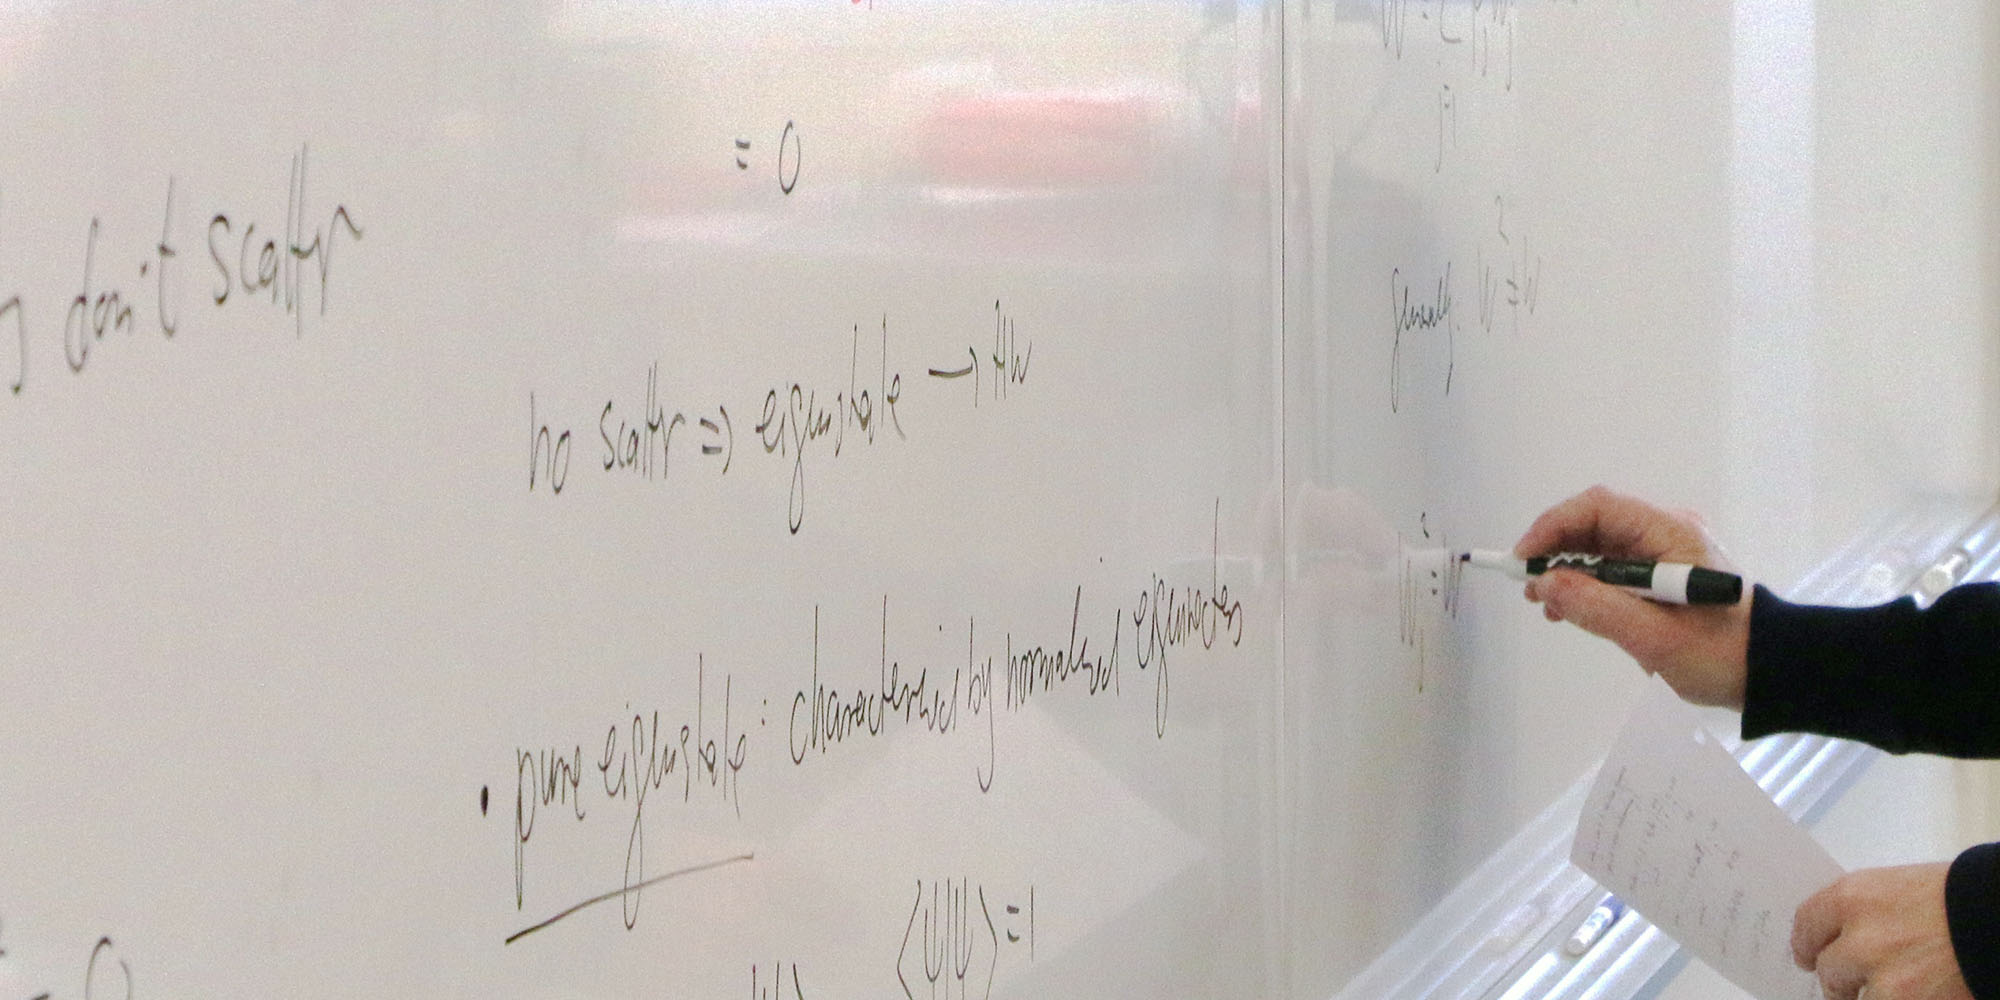 = 0
don't scattr
no scattr => eigenstate → HW
• pure eigenstate: characterized by normalized eigenvectors
⟨ψ|ψ⟩ = 1
= 0
W = Σ pⱼWⱼ
j=1
generally: W² ≠ W
Wⱼ² = W